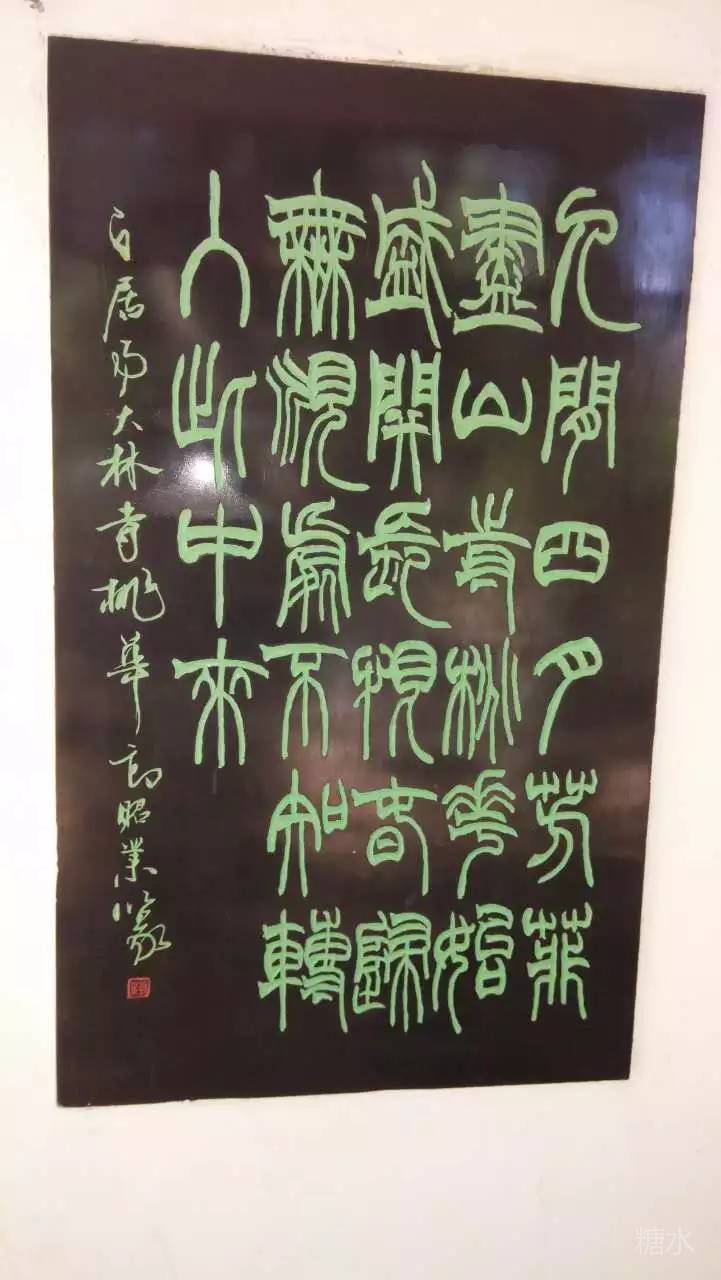 人間四月芳菲
盡山寺桃花始
盛開長恨春歸
無覓處不知轉
入此中來
白居易大林寺桃華 昭業篆
糖水